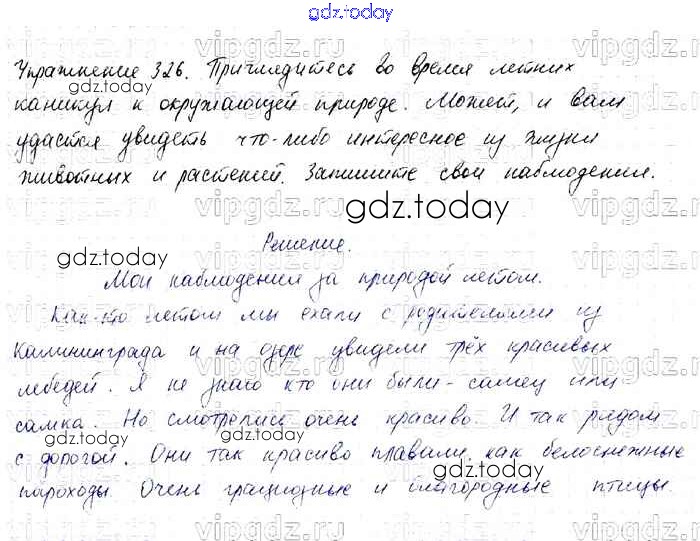 gdz.today
Упражнение 326. Приглядитесь во время летних
каникул к окружающей природе. Может, и вам
удастся увидеть что-либо интересное из жизни
животных и растений. Запишите свои наблюдения.
gdz.today
Решение.
gdz.today
Мои наблюдения за природой летом.
Как-то летом мы ехали с родителями из
gdz.today
Калининграда и на озере увидели трёх красивых
лебедей. Я не знаю кто они были - самец или
самка. Но смотрелись очень красиво. И так рядом
gdz.today
с дорогой. Они так красиво плавали, как белоснежные
gdz.today
пароходы. Очень грациозные и благородные птицы.
vipgdz.ru